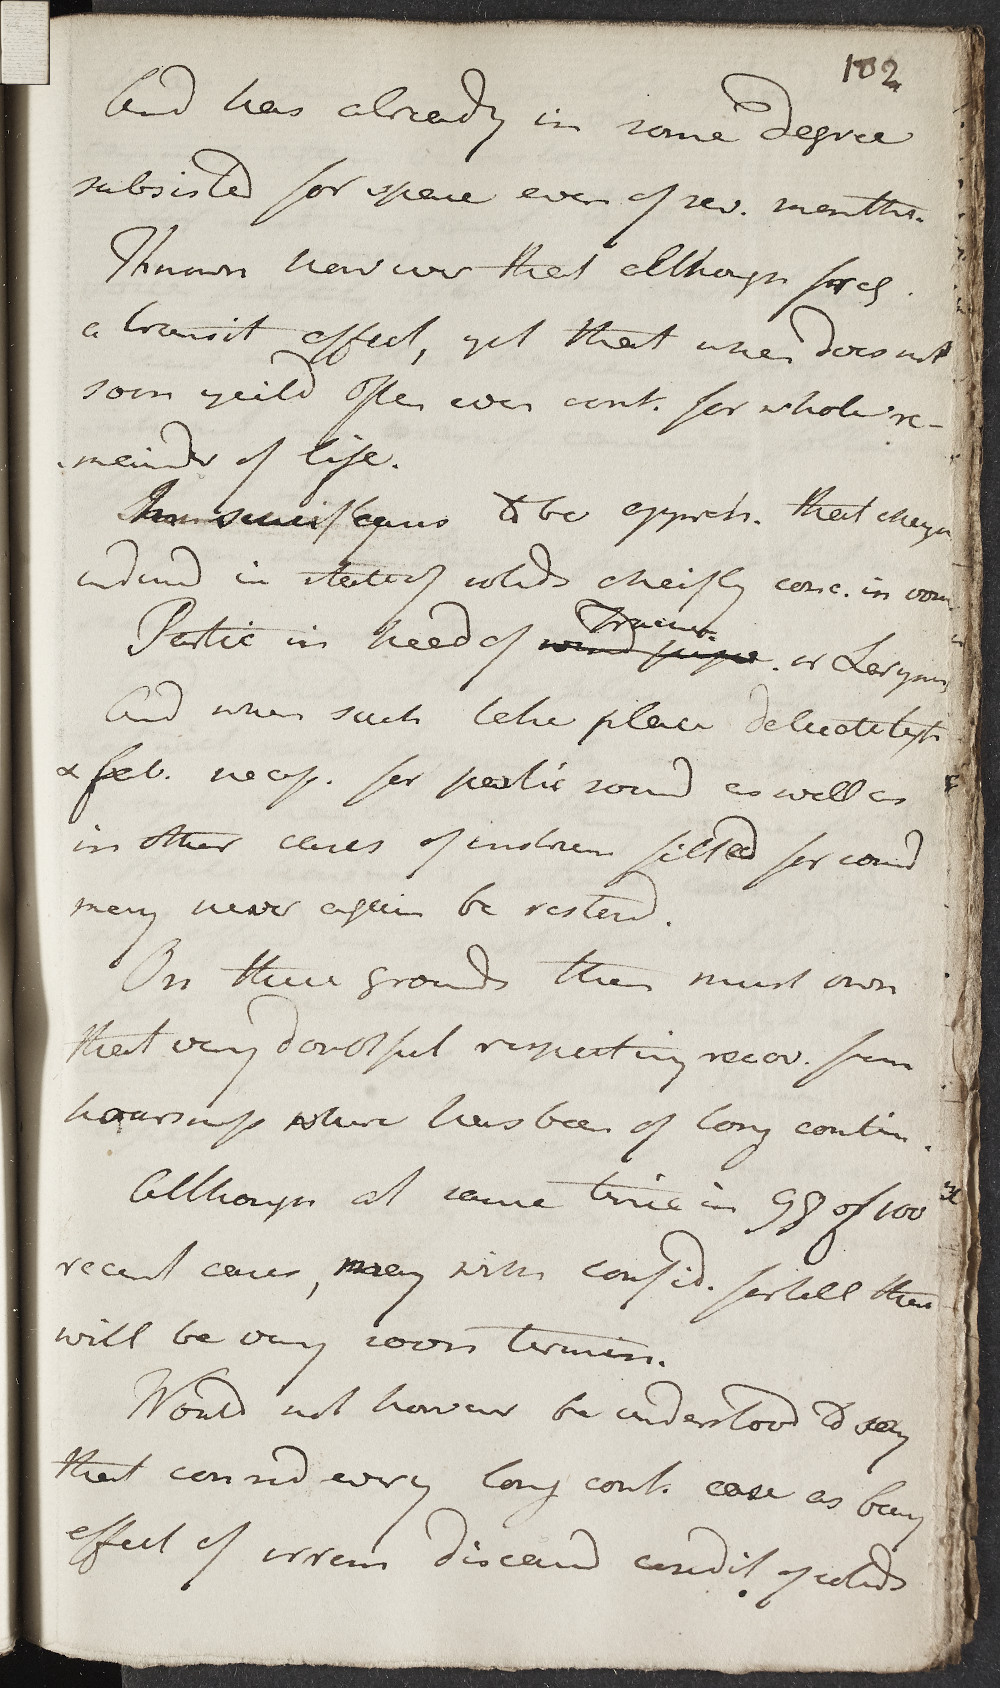 102
And has already in some degree
subsisted for space even of sev. months.
Known however that although freq.
a transit effect, yet that when does not
soon yeild often even cont. for whole re-
mainder of life.
In such cases to be appreh. that change
induced in state of solids cheifly conc. in
Partic in head of wind pipe Trachea. or Larynx
And when such take place delicate
& feb. necess. for partic sound as well as
in other cases of instrum fitted for sound
may never again be restord.
On these grounds then must own
that very doubtful respecting recov. from
hoarsness where has been of long contin.
Although at same time in 98 of 100
recent cases, may with confid. fortell that
will be very soon termin.
Would not however be understood to say
that consid every long cont. case as being
effect of irrem diseased condit of solids